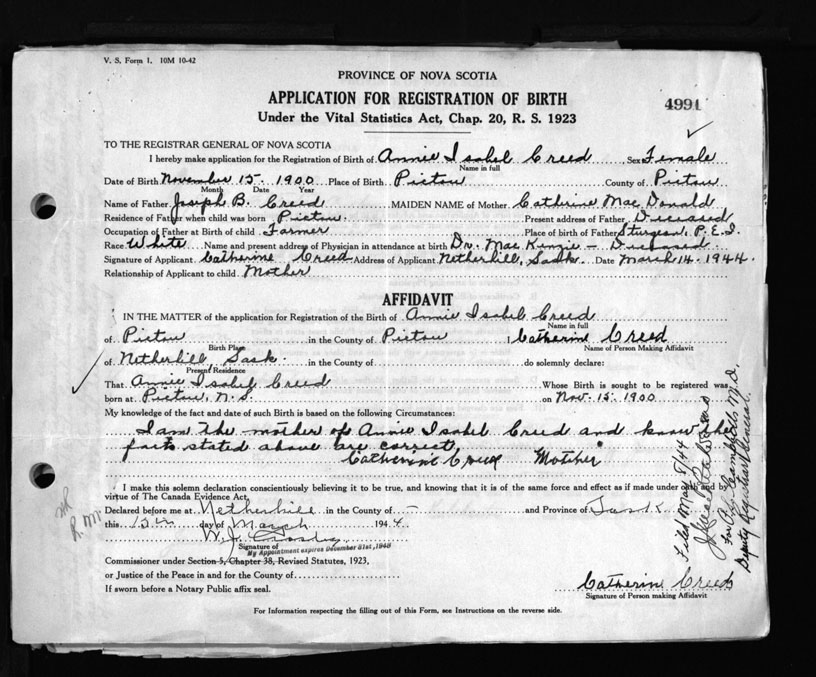 V. S. Form 1. 10M 10-42
PROVINCE OF NOVA SCOTIA
APPLICATION FOR REGISTRATION OF BIRTH
4991
Under the Vital Statistics Act, Chap. 20, R. S. 1923
TO THE REGISTRAR GENERAL OF NOVA SCOTIA
I hereby make application for the Registration of Birth of Annie Isabel Creed Sex Female
Name in full
Date of Birth November 15. 1900 Place of Birth Pictou County of Pictou
Month Date Year
Name of Father Joseph B. Creed MAIDEN NAME of Mother Catherine Mac Donald
Residence of Father when child was born Pictou. Present address of Father Diseased
Occupation of Father at Birth of child Farmer Place of birth of Father Sturgeon, P.E.I.
Race White Name and present address of Physician in attendance at birth Dr. Mac Kenzie - Deceased.
Signature of Applicant Catherine Creed Address of Applicant Netherhill, Sask. Date March 14. 1944.
Relationship of Applicant to child Mother
AFFIDAVIT
IN THE MATTER of the application for Registration of the Birth of Annie Isabel Creed
Name in full
of Pictou in the County of Pictou I Catherine Creed
Birth Place Name of Person Making Affidavit
of Netherhill, Sask. in the County of do solemnly declare:
Present Residence
That Annie Isabel Creed Whose Birth is sought to be registered was
born at Pictou, N.S. on Nov. 15. 1900
My knowledge of the fact and date of such Birth is based on the following Circumstances:
I am the mother of Annie Isabel Creed and know the
facts stated above are correct.
Catherine Creed Mother
I make this solemn declaration conscientiously believing it to be true, and knowing that it is of the same force and effect as if made under oath and by
virtue of The Canada Evidence Act.
Declared before me at Netherhill in the County of - and Province of Sask
this 15th day of March 1944
W. J. Crosby
Signature of
My Appointment expires December 31st, 1946
Commissioner under Section 5, Chapter 38, Revised Statutes, 1923,
or Justice of the Peace in and for the County of
If sworn before a Notary Public affix seal.
Catherine Creed
Signature of Person making Affidavit
For Information respecting the filling out of this Form, see Instructions on the reverse side.
Filed May 8/44
For Campbell M.D.
Deputy Registrar General.
R. M.